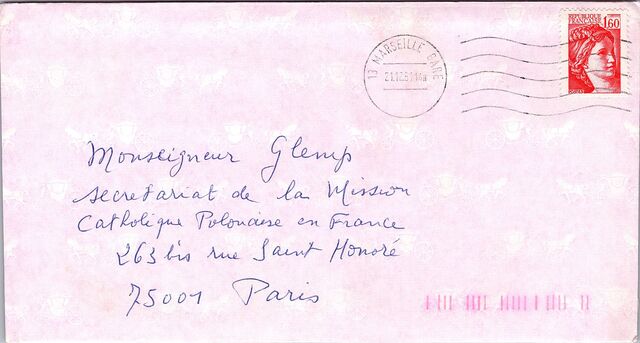 REPUBLIQUE FRANÇAISE 1,60
13 MARSEILLE GARE
21.12.81 14H
Monseigneur Glemp
secretariat de la Mission
Catholique Polonaise en France
263 bis rue Saint Honoré
75001 Paris